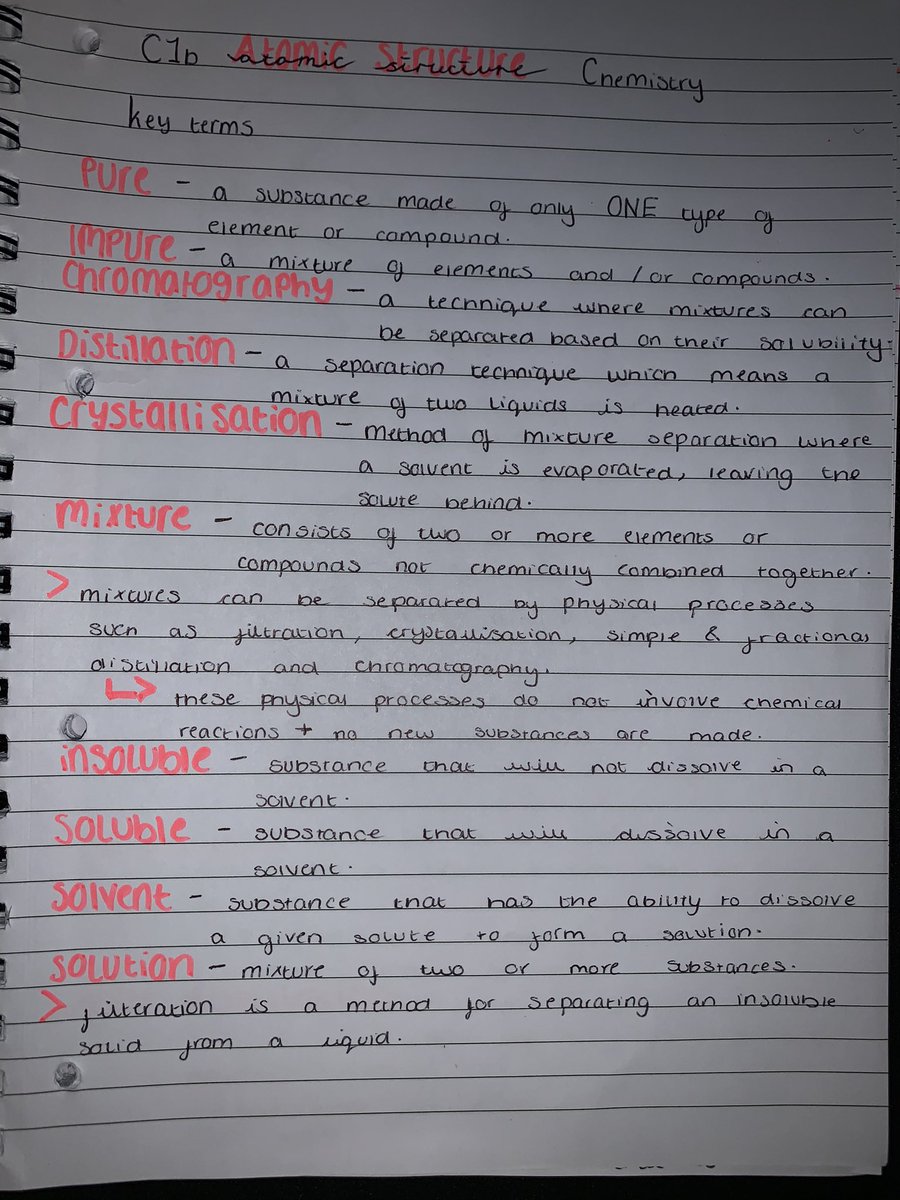 C1b Atomic Structure Chemistry
key terms
Pure - a substance made of only ONE type of
element or compound.
Impure - a mixture of elements and /or compounds.
Chromatography - a technique where mixtures can
be separated based on their solubility.
Distillation - a separation technique which means a
mixture of two liquids is heated.
Crystallisation - method of mixture separation where
a solvent is evaporated, leaving the
solute behind.
Mixture - consists of two or more elements or
compounds not chemically combined together.
> mixtures can be separated by physical processes
such as filtration, crystallisation, simple & fractional
distillation and chromatography.
↳ these physical processes do not involve chemical
reactions + no new substances are made.
insoluble - substance that will not dissolve in a
solvent.
Soluble - substance that will dissolve in a
solvent.
Solvent - substance that has the ability to dissolve
a given solute to form a solution.
Solution - mixture of two or more substances.
> filteration is a method for separating an insoluble
solid from a liquid.